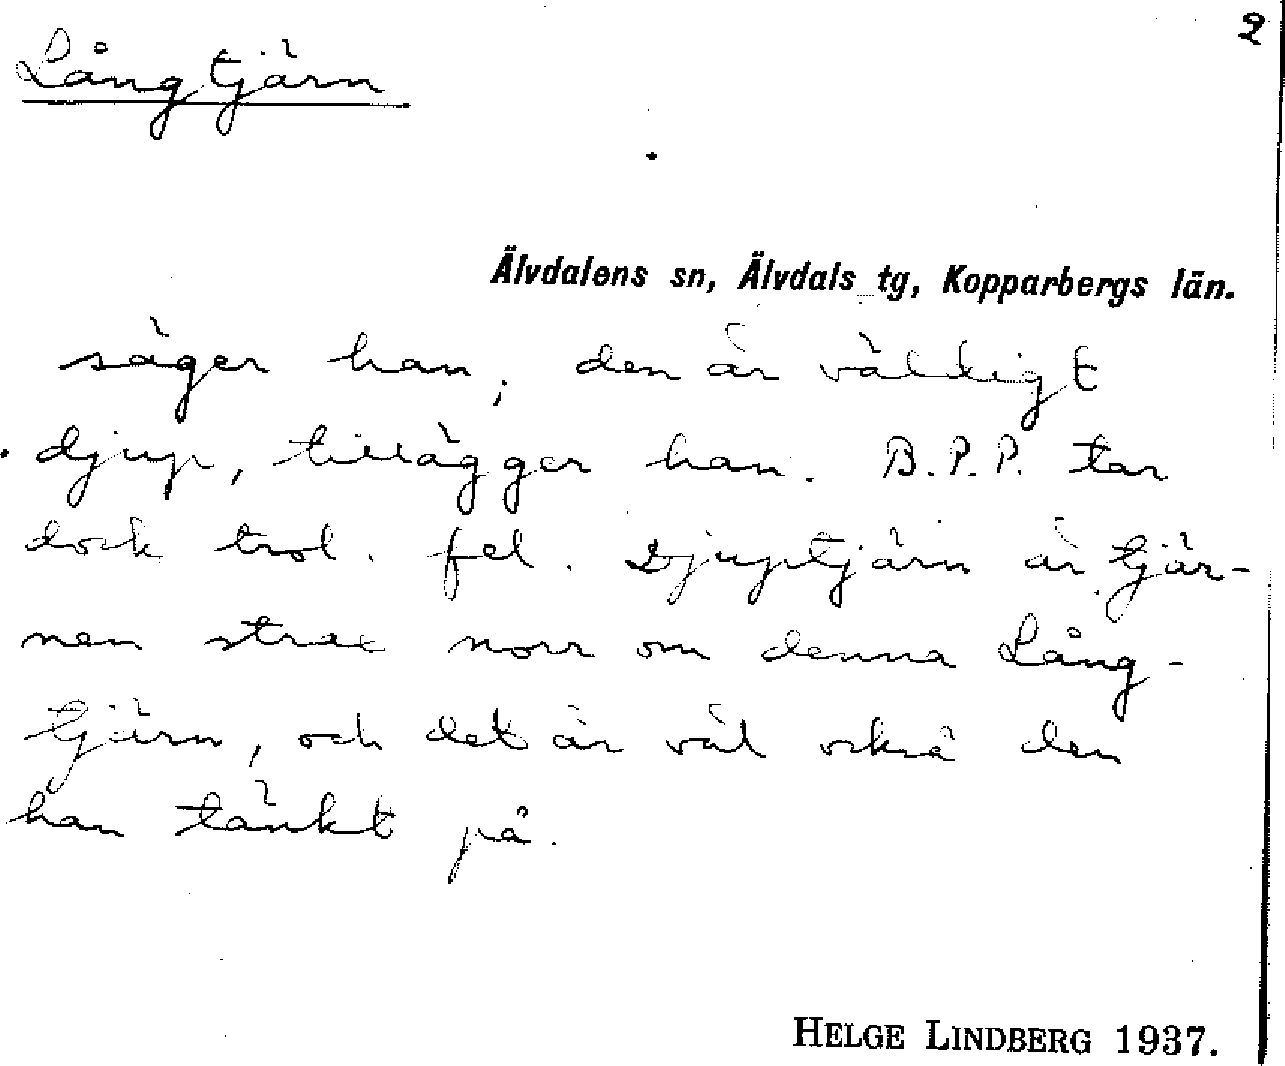 2
Långtjärn
Älvdalens sn, Älvdals tg, Kopparbergs län.
säger han; den är väldigt
djup, tillägger han. B.P.P. tar
dock trol. fel. Djuptjärn är tjär-
nen strax norr om denna Lång-
tjärn, och det är väl också den
han tänkt på.
HELGE LINDBERG 1937.